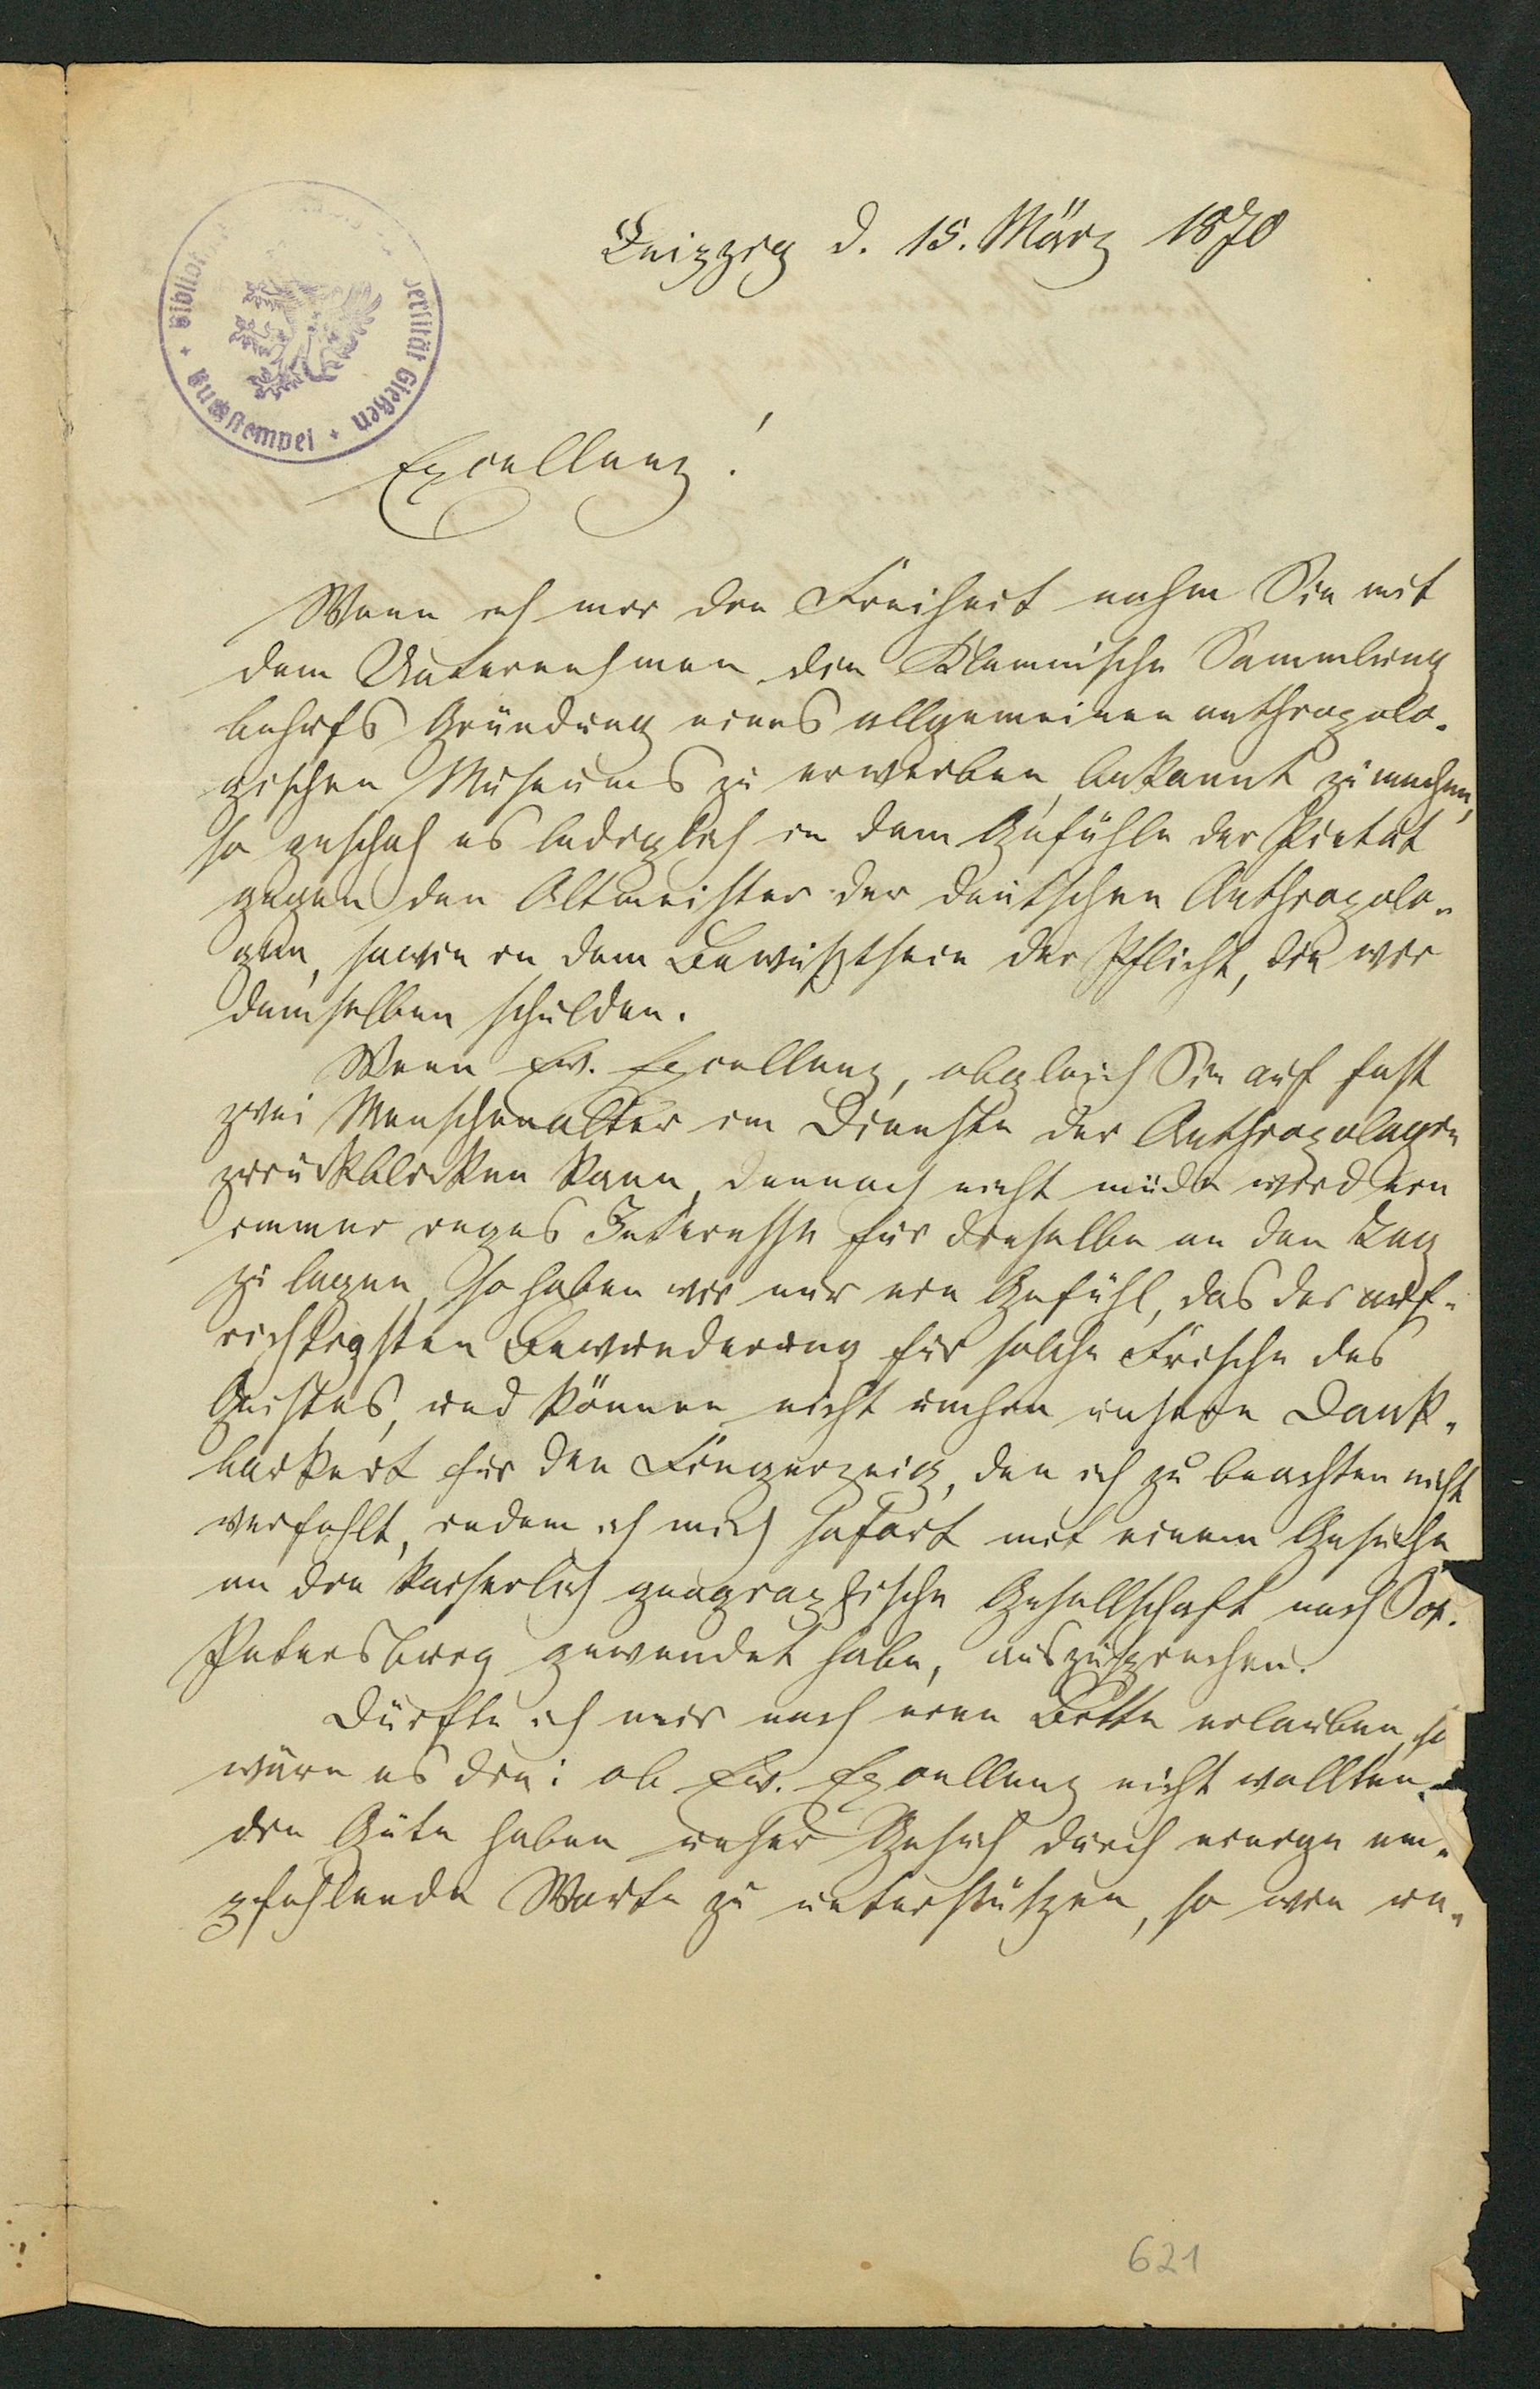 Leipzig d. 15. März 1870
Bibliot
versität Gießen
Buchstempel
Excellenz!
Wenn ich mir die Freiheit nahm Sie mit
dem Unternehmen die Klemmische Sammlung
behufs Gründung eines allgemeinen anthropolo-
gischen Museums zu erwerben, bekannt zu machen,
so geschah es lediglich in dem Gefühle der Pietät
gegen den Altmeister der deutschen Anthropolo-
gen, sowie in dem Bewußtsein der Pflicht, die wir
demselben schulden.
Wenn Ew. Excellenz, obgleich Sie auf fast
zwei Menschenalter im Dienste der Anthropologie
zurückblicken kann, dennoch nicht müde wird ein
immer reges Interesse für dieselbe an den Tag
zu legen, so haben wir nur ein Gefühl, das der auf-
richtigsten Bewunderung für solche Frische des
Geistes, und können nicht umhin unsere Dank-
barkeit für den Fingerzeig, den ich zu beachten nicht
verfehlt, indem ich mich sofort mit einem Gesuche
an die kaiserlich geographische Gesellschaft nach Sct.
Petersburg gewendet habe, auszusprechen.
Dürfte ich mir noch eine Bitte erlauben, so
wäre es die: ob Ew. Excellenz nicht wollten
die Güte haben unser Gesuch durch einige em-
pfehlende Worte zu unterstützen, so wie un-
621